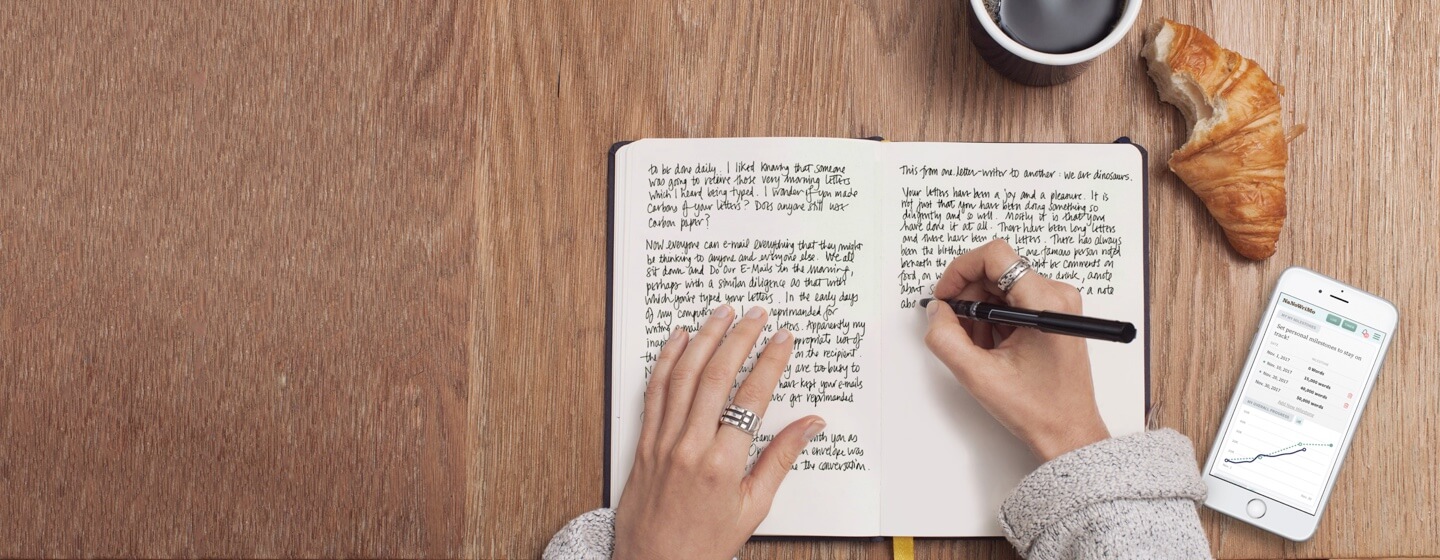 to be done daily. I liked knowing that someone
was going to receive those very morning letters
which I heard being typed. I wonder if you made
carbons of your letters? Does anyone still use
carbon paper?
Now everyone can e-mail everything that they might
be thinking to anyone and everyone else. We all
sit down and Do Our E-Mails in the morning,
perhaps with a similar diligence as that with
which you've typed your letters. In the early days
of my reprimanded for
writing letters. Apparently my
use of
the on the recipient.
are too busy to
have kept your e-mails
get reprimanded
with you as
an envelope was
the conversation.
This from one letter-writer to another: we are dinosaurs.
Your letters have been a joy and a pleasure. It is
not just that you have been doing something so
diligently and so well. Mostly it is that you
have done it at all. There have been long letters
and there have been letters. There has always
been the one famous person noted
beneath the might be comments on
food, on drink, a note
about or a note
abo
NaNoWriMo
Set personal milestones to stay on
track!
Nov. 1, 2017 0 Words
Nov. 10, 2017 15,000 words
Nov. 20, 2017 40,000 words
Nov. 30, 2017 50,000 words
Add New Milestone